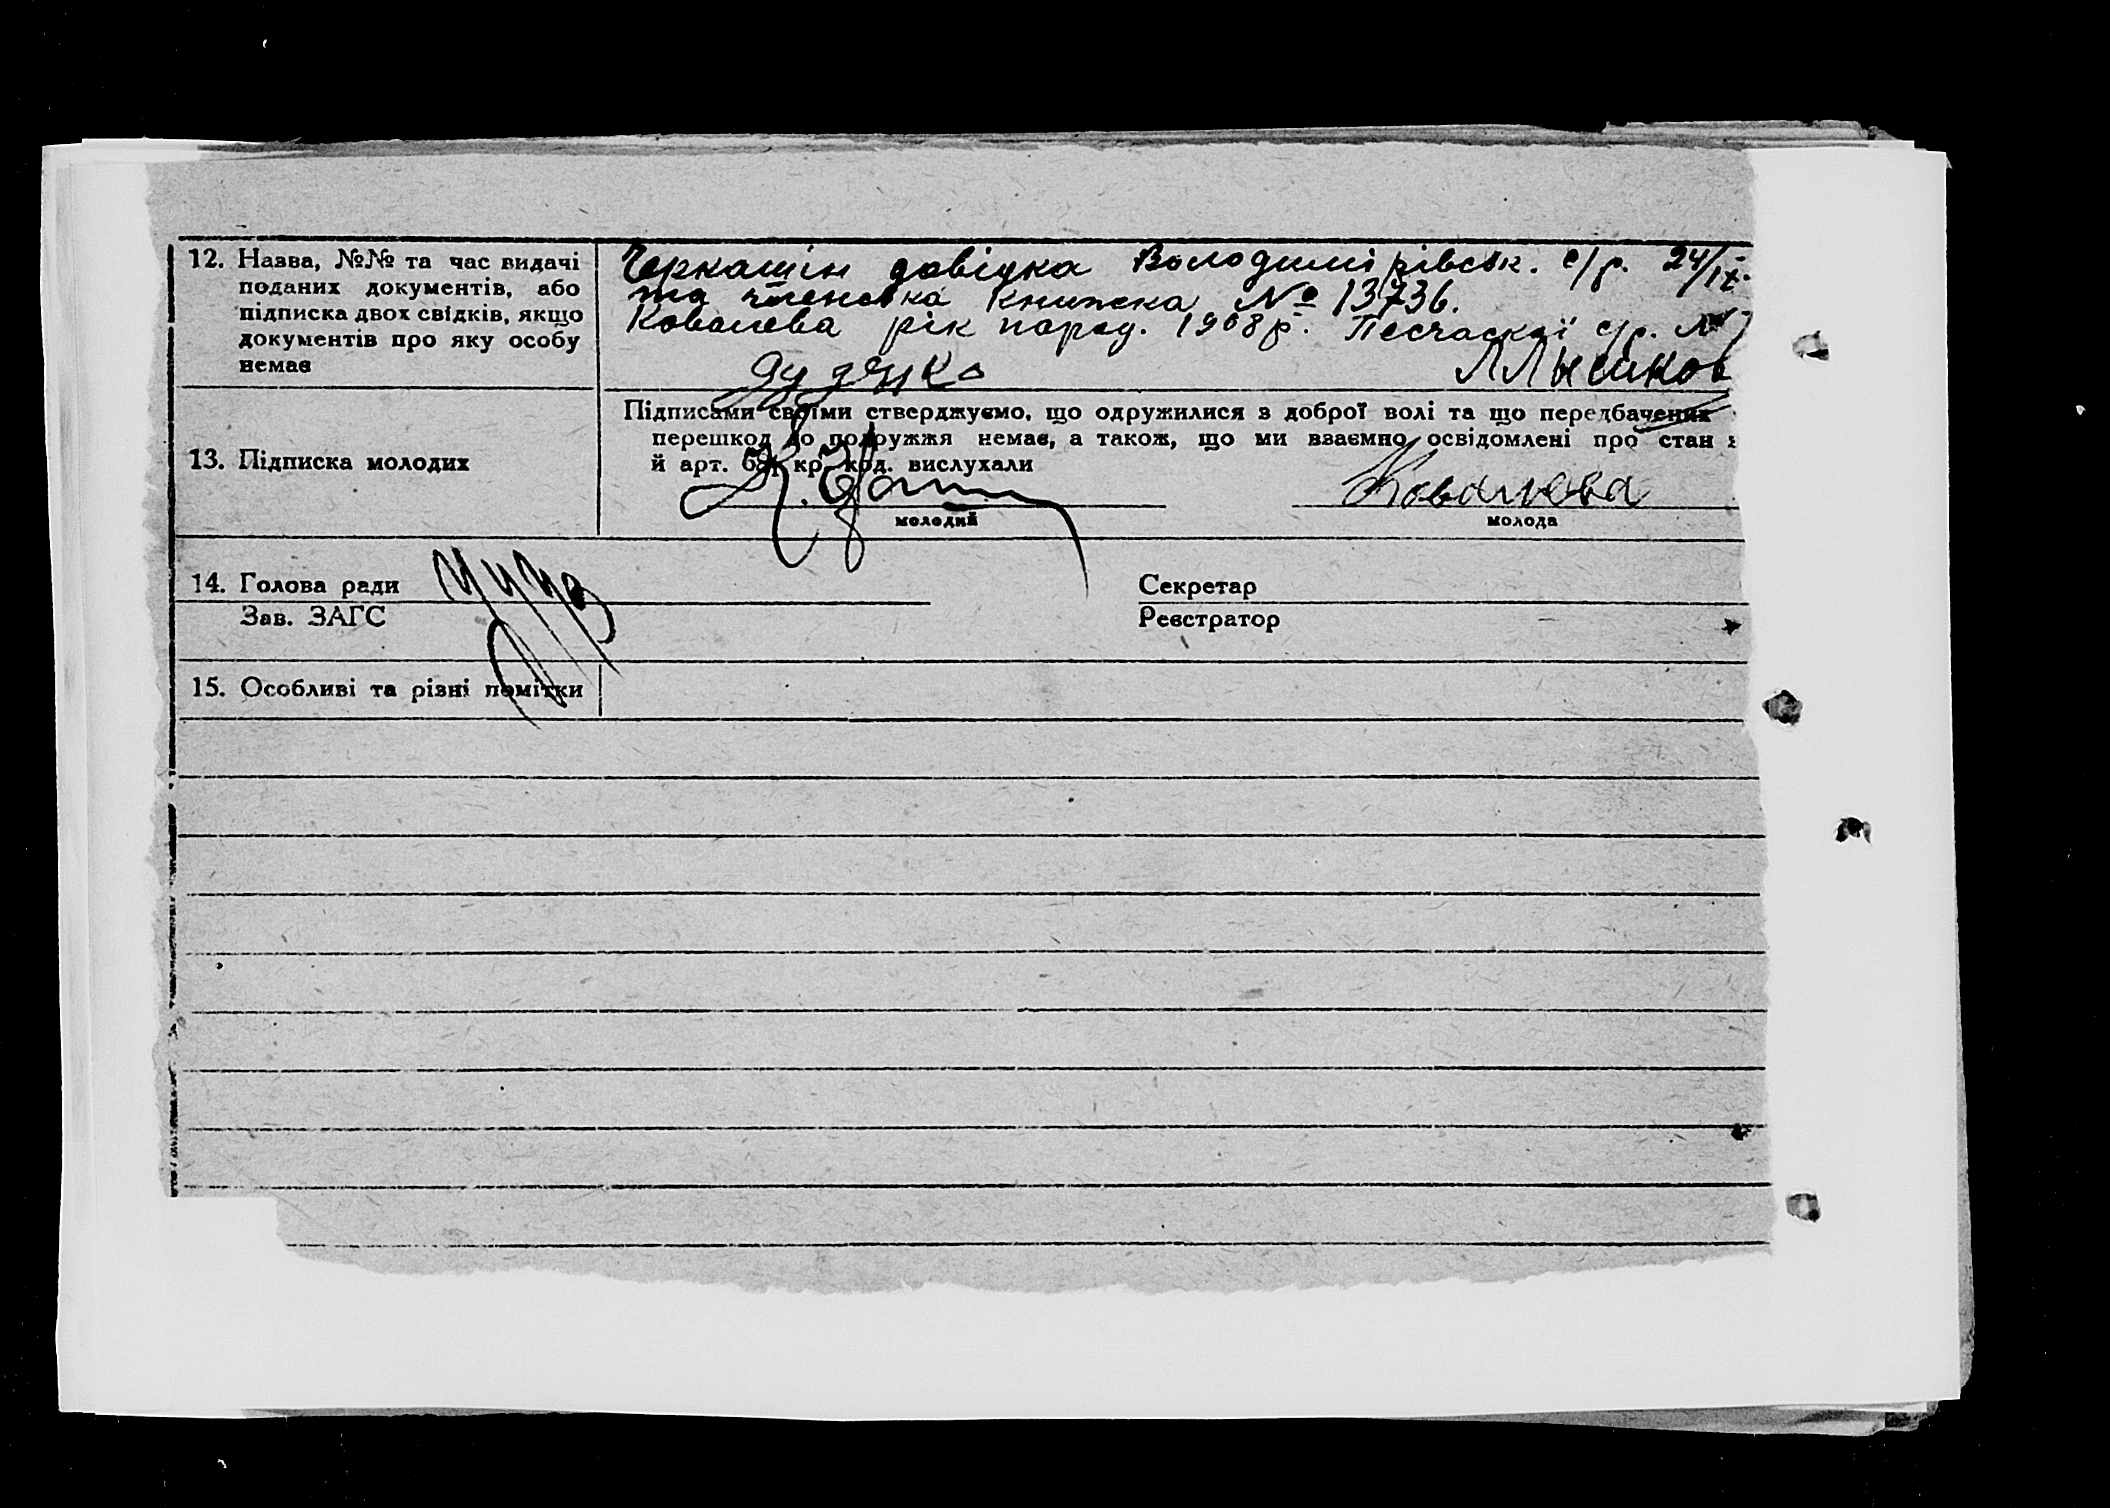 12. Назва, №№ та час видачі
поданих документів, або
підписка двох свідків, якщо
документів про яку особу
немає
Черкашин довідка Володимирівськ. с/р. 24/IX.
та членська книжка № 13736.
Ковалева рік народ. 1908 р. Песчаской с/р. №
Дудечко
13. Підписка молодих
Підписами своїми стверджуємо, що одружилися з доброї волі та що передбачених
перешкод до подружжя немає, а також, що ми взаємно освідомлені про стан з
й арт. кр. код. вислухали
Ковалева
молодий
молода
14. Голова ради
Секретар
Зав. ЗАГС
Реєстратор
15. Особливі та різні помітки